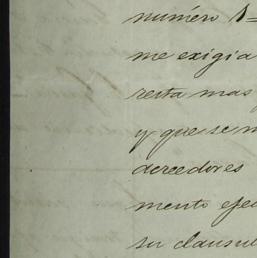 número 1=
me exigia
resta mas
y que se
acreedores
mento efec
su clausul